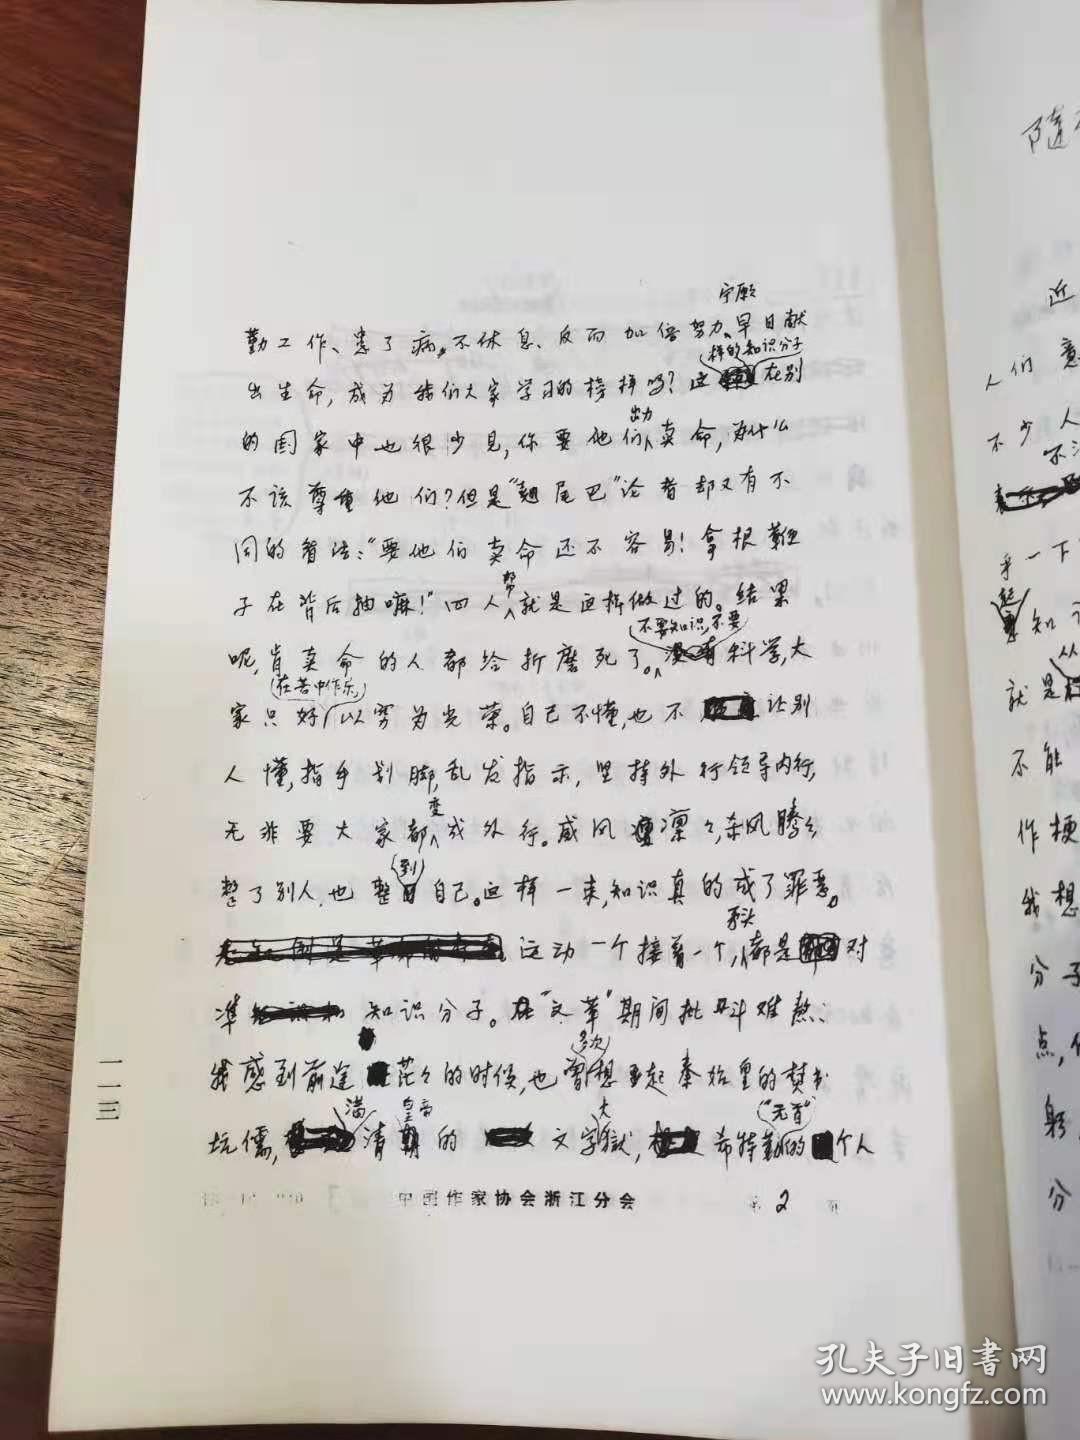 勤工作、患了病,不休息、反而加倍努力,宁愿早日献
出生命,成为我们大家学习的榜样吗?这样的知识分子在别
的国家中也很少见,你要他们出力卖命,为什么
不该尊重他们?但是“翘尾巴”论者却又有不
同的看法:“要他们卖命还不容易!拿根鞭
子在背后抽嘛!”四人帮就是这样做过的。结果
呢,肯卖命的人都给折磨死了。不要知识,不要科学,大
家只好在苦中作乐,以穷为光荣。自己不懂,也不让别
人懂,指手划脚,乱发指示,坚持外行领导内行,
无非要大家都变成外行。威风凛凛,杀风腾腾,
整了别人,也整到自己。这样一来,知识真的成了罪恶。
运动一个接着一个,矛头都是对
准知识分子。在“文革”期间批斗难熬、
我感到前途茫茫的时候,也曾多次想起秦始皇的焚书
坑儒,满清皇帝的文字大狱,希特勒的“元首”个人
中国作家协会浙江分会 第2页
一一三
随
近
人们意
不少人
手一下
知识
就是
不能
作梗
我想
分子
点,
躬
分
孔夫子旧书网
www.kongfz.com